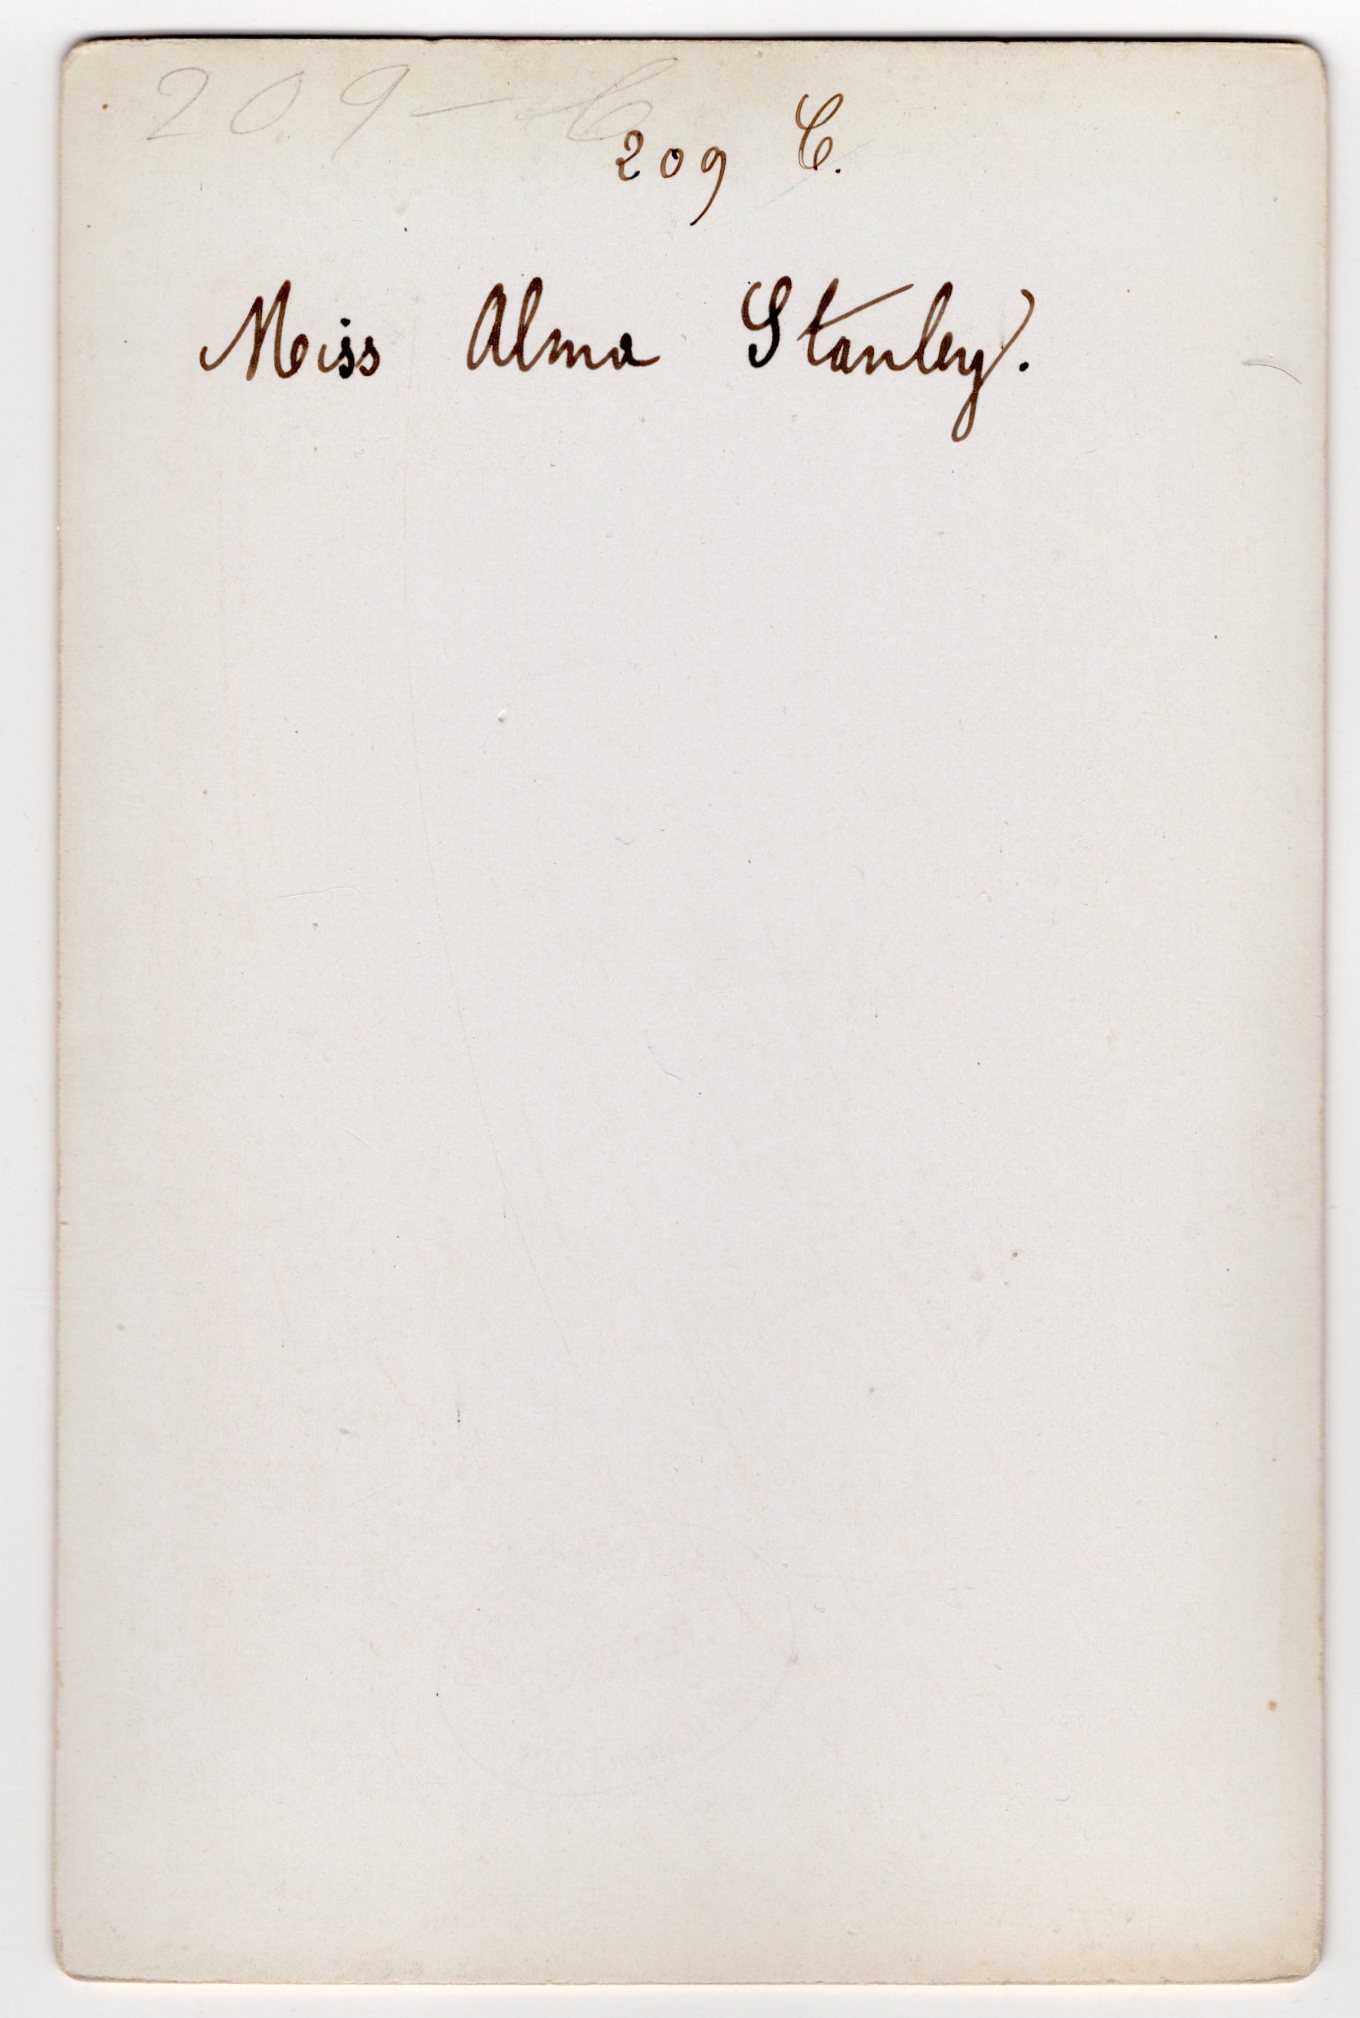 209-C
209 C.
Miss Alma Stanley.